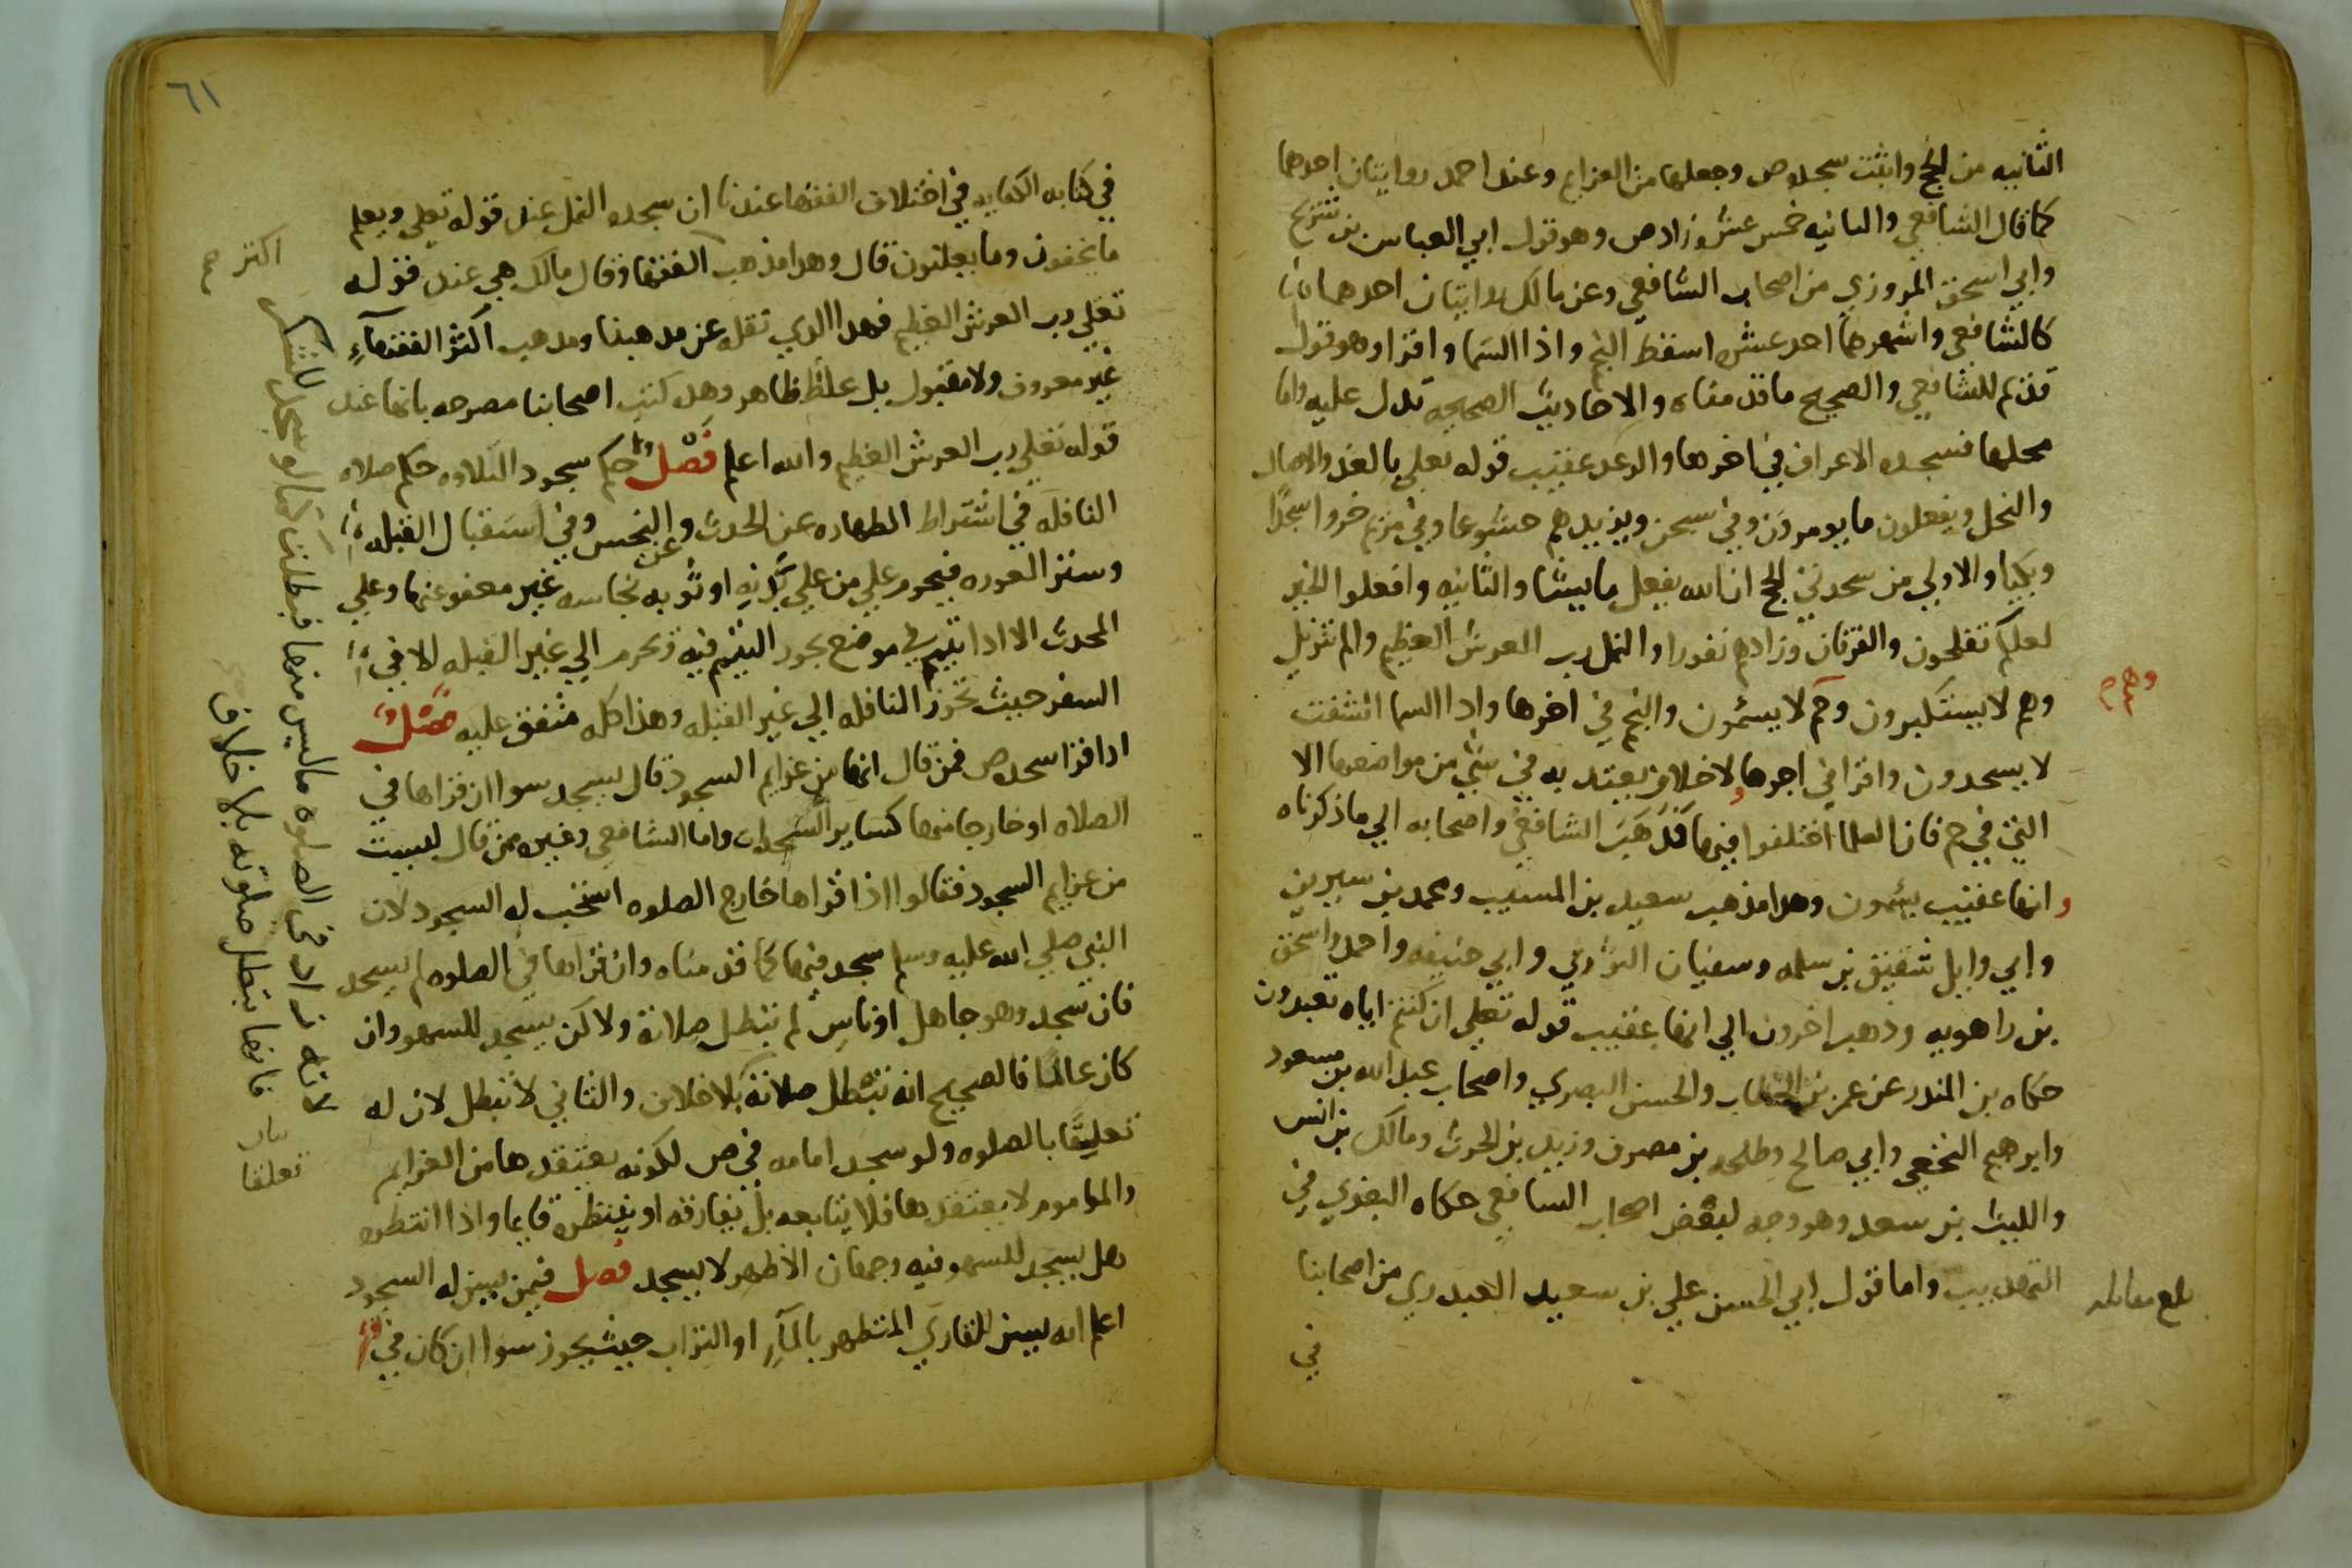 الثانيه من الحج واثبت سجده ص وجعلها من العزايم وعند احمد روايتان احدهما
كما قال الشافعي والثانيه خمس عشره زاد ص وهو قول ابي العباس بن شريح
وابي اسحق المروزي من اصحاب الشافعي وعن مالك روايتان احدهما
كالشافعي واشهرهما احد عشر اسقط النجم واذا السما واقرا وهو قول
قديم للشافعي والصحيح ما قدمناه والاحاديث الصحيحه تدل عليه واما
محلها فسجده الاعراف في اخرها والرعد عقيب قوله تعلي بالغدو والاصال
والنحل ويفعلون ما يومرون وفي سبحن ويزيدهم خشوعا وفي مريم خروا سجدًا
وبكيا والاولي من سجدتي الحج ان الله يفعل ما يشا والثانيه وافعلوا الخير
لعلكم تفلحون والفرقان وزادهم نفورا والنمل رب العرش العظيم والم تنزيل
وهم لا يستكبرون وحم لا يسئمون والنجم في اخرها واذا السما انشقت
لا يسجدون واقرا في اخرها ولا خلاف يعتد به في شي من مواضعها الا
التي في حم فان العلما اختلفوا فيها فذهب الشافعي واصحابه الي ما ذكرناه
وانها عقيب يسئمون وهذا مذهب سعيد بن المسيب ومحمد بن سيرين
وابي وايل شقيق بن سلمه وسفيان الثوري وابي حنيفه واحمد واسحق
بن راهويه وذهب اخرون الي انها عقيب قوله تعلي ان كنتم اياه تعبدون
حكاه بن المنذر عن عمر بن الخطاب والحسن البصري واصحاب عبد الله بن مسعود
وابرهيم النخعي وابي صالح وطلحه بن مصرف وزبيد بن الحرث ومالك بن انس
والليث بن سعد وهو وجه لبعض اصحاب الشافعي حكاه البغوي في
التهذيب واما قول ابي الحسن علي بن سعيد العبدري من اصحابنا
في
بلغ مقابله
٦١
في كتابه الكفايه في اختلاف الفقها عندنا ان سجده النمل عند قوله تعلي ويعلم
ما يخفون وما يعلنون قال وهذا مذهب اكثر الفقها وقال مالك هي عند قوله
تعلي رب العرش العظيم فهذا الذي نقله عن مذهبنا ومذهب اكثر الفقهآءِ
غير معروف ولا مقبول بل غلط ظاهر وهذه كتب اصحابنا مصرحه بانها عند
قوله تعلي رب العرش العظيم والله اعلم فصل حكم سجود التلاوه حكم صلاه
النافله في اشتراط الطهاره عن الحدث وعن النجس وفي استقبال القبله
وستر العوره فيحرم علي من علي بدنه او ثوبه نجاسه غير معفو عنها وعلي
المحدث الا اذا تيمم في موضع يجوز التيمم فيه وتحرم الي غير القبله الا في
السفر حيث تجوز النافله الي غير القبله وهذا كله متفق عليه فصل
اذا قرا سجده ص فمن قال انها من عزايم السجود قال يسجد سوا ان قراها في
الصلاه او خارجا منها كساير السجدات واما الشافعي وغيره ممن قال ليست
من عزايم السجود فقالوا اذا قراها خارج الصلوه استحب له السجود لان
النبي صلي الله عليه وسلم سجد فيها كما قدمناه وان قراها في الصلوه لم يسجد
فان سجد وهو جاهل او ناسٍ لم تبطل صلاته ولاكن يسجد للسهو وان
كان عالمًا فالصحيح انه تبطل صلاته بلا خلاف والثاني لا تبطل لان له
تعليقًا بالصلوه ولو سجد امامه في ص لكونه يعتقدها من العزايم
والماموم لا يعتقدها فلا يتابعه بل يفارقه او ينتظره قايما واذا انتظره
هل يسجد للسهو فيه وجهان الاظهر لا يسجد فصل فيمن يسن له السجود
اعلم انه يسن للقاري المتطهر بالمآءِ او التراب حيث يجوز سوا ان كان في
اكثر
لانه زاد في الصلوه ما ليس منها فبطلت كما لو سجد للشكر
فانها تبطل صلوته بلا خلاف
تعلقا